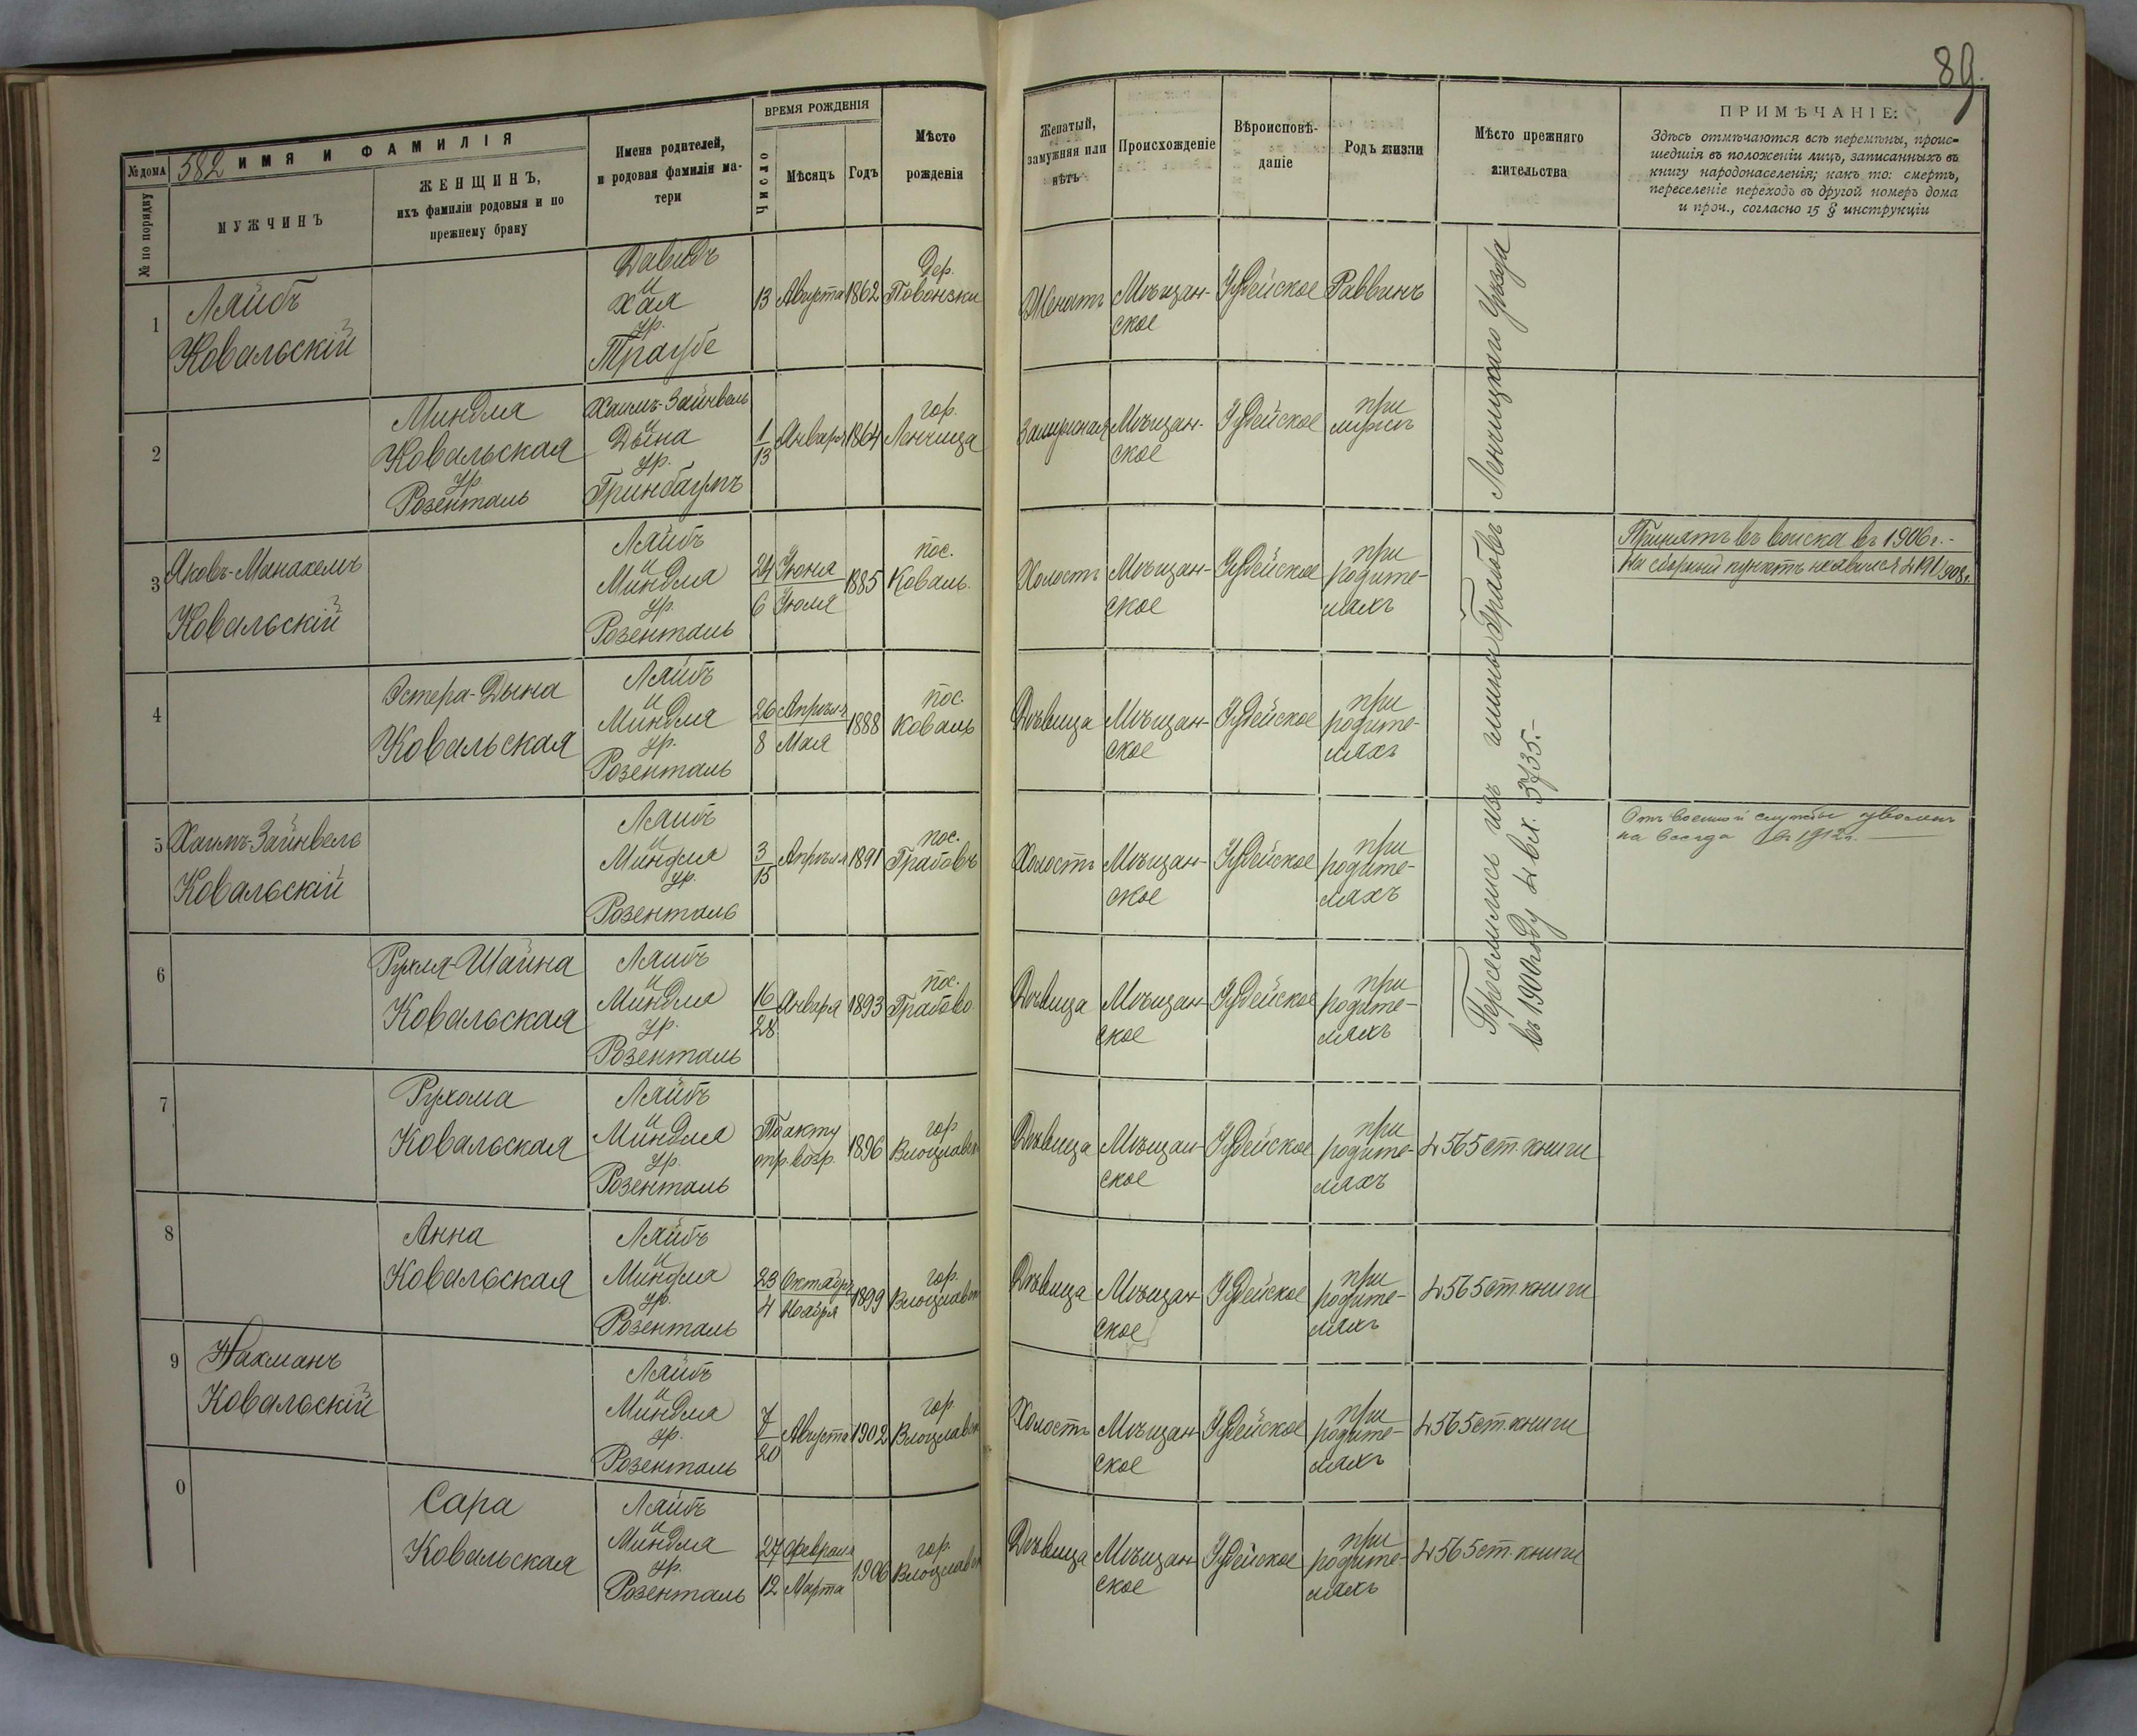 89.
№ дома 582 ИМЯ И ФАМИЛІЯ
№ по порядку
МУЖЧИНЪ
ЖЕНЩИНЪ,
ихъ фамиліи родовыя и по
прежнему браку
Имена родителей,
и родовая фамилія ма-
тери
ВРЕМЯ РОЖДЕНІЯ
Число
Мѣсяцъ
Годъ
Мѣсто
рожденія
Женатый,
замужняя или
нѣтъ
Происхожденіе
Вѣроисповѣ-
даніе
Родъ жизни
Мѣсто прежняго
жительства
ПРИМѢЧАНІЕ:
Здѣсь отмѣчаются всѣ перемѣны, проис-
шедшія въ положеніи лицъ, записанныхъ въ
книгу народонаселенія; какъ то: смерть,
переселеніе переходъ въ другой номеръ дома
и проч., согласно 15 § инструкціи
1
Ляйбъ
Ковальскій
Давидъ
и
Хая
ур.
Траубе
13 Августа 1862
Дер.
Повонзки
Женатъ
Мѣщан-
ское
Іудейское
Раввинъ
2
Миндля
Ковальская
ур
Розенталь
Хаимъ-Зайнвель
и
Дына
ур.
Гринбаумъ
1
13
Января 1864
гор.
Ленчица
Замужняя
Мѣщан-
ское
Іудейское
при
мужѣ
3
Яковъ-Манахемъ
Ковальскій
Ляйбъ
и
Миндля
ур.
Розенталь
24 Іюня
6 Іюля
1885
пос.
Коваль.
Холостъ
Мѣщан-
ское
Іудейское
при
родите-
ляхъ
Принятъ въ войска въ 1906 г.-
На сборный пунктъ не явился
4
Эстера-Дына
Ковальская
Ляйбъ
и
Миндля
ур.
Розенталь
26 Апрѣля
8 Мая
1888
пос.
Коваль
Дѣвица
Мѣщан-
ское
Іудейское
при
родите-
ляхъ
5
Хаимъ-Зайнвель
Ковальскій
Ляйбъ
и
Миндля
ур.
Розенталь
3
15
Апрѣля 1891
пос.
Грабовъ
Холостъ
Мѣщан-
ское
Іудейское
при
родите-
ляхъ
Отъ военной службы уволенъ
на всегда въ 1912 г.
6
Рухля-Шайна
Ковальская
Ляйбъ
и
Миндля
ур.
Розенталь
16
28
Января 1893
пос.
Грабово
Дѣвица
Мѣщан-
ское
Іудейское
при
родите-
ляхъ
Переселились изъ гмина Грабовъ Ленчицкаго Уѣзда
въ 1900 году № вх. 3735.-
7
Рухома
Ковальская
Ляйбъ
и
Миндля
ур.
Розенталь
По акту
опр. возр.
1896
гор.
Влоцлавск
Дѣвица
Мѣщан-
ское
Іудейское
при
родите-
ляхъ
№ 565 ст. книги
8
Анна
Ковальская
Ляйбъ
и
Миндля
ур.
Розенталь
23 Октября
4 Ноября
1899
гор.
Влоцлавск
Дѣвица
Мѣщан-
ское
Іудейское
при
родите-
ляхъ
№ 565 ст. книги
9
Нахманъ
Ковальскій
Ляйбъ
и
Миндля
ур.
Розенталь
7
20
Августа 1902
гор.
Влоцлавск
Холостъ
Мѣщан-
ское
Іудейское
при
родите-
ляхъ
№ 565 ст. книги
0
Сара
Ковальская
Ляйбъ
и
Миндля
ур.
Розенталь
27 Февраля
12 Марта
1906
гор.
Влоцлавск
Дѣвица
Мѣщан-
ское
Іудейское
при
родите-
ляхъ
№ 565 ст. книги